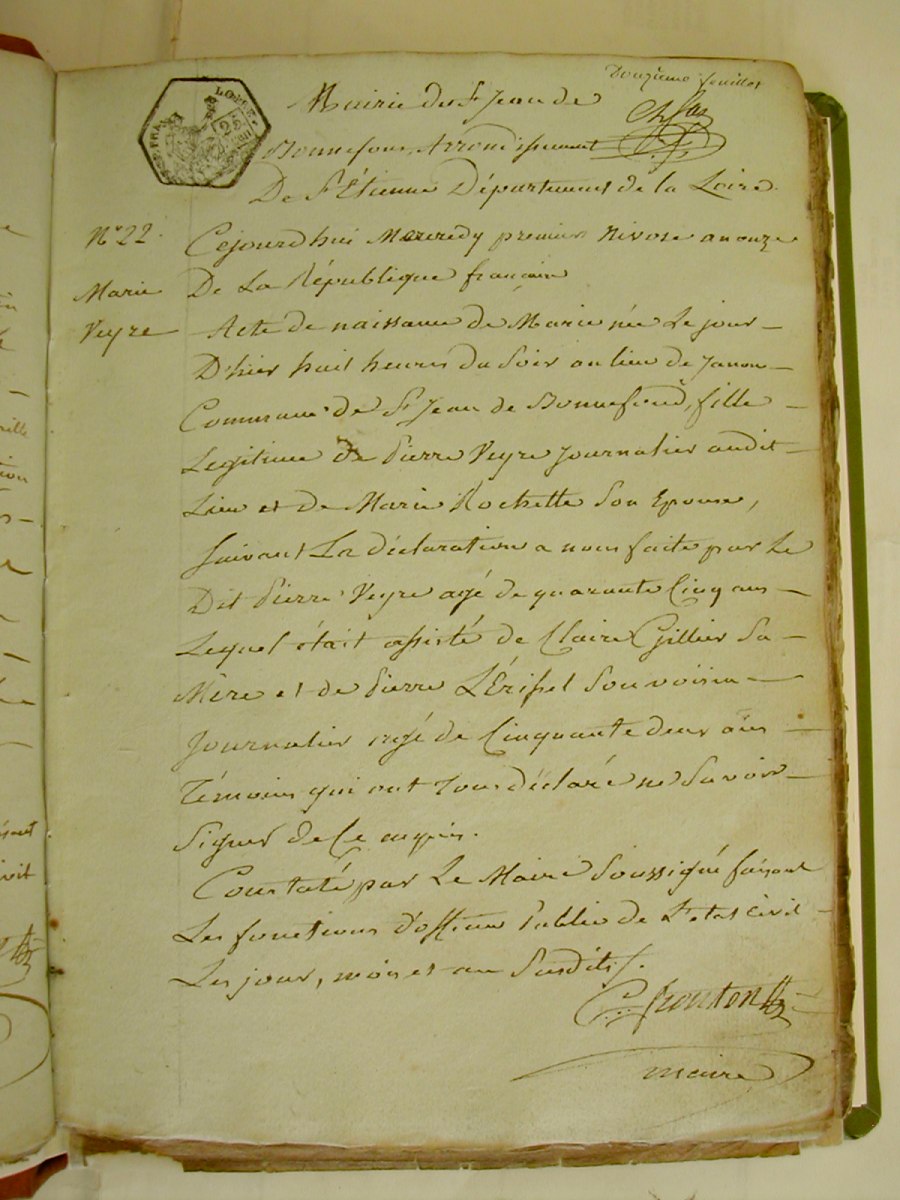 Douzieme feuillet
Mairie de St Jean de
Bonnefons, Arrondissement
De St Étienne Département de la Loire.
N° 22.
Marie
Veyre
Cejourdhui Mercredy premier Nivose an onze
De La République francaise
Acte de naissance de Marie née Le jour
D'hier huit heures du Soir au lieu de Janon
Commune de St Jean de Bonnefond, fille
Legitime de Pierre Veyre Journalier audit
Lieu et de Marie Rochette Son Epouse,
Suivant La déclaration a nous faite par Le
Dit Pierre Veyre agé de quarante Cinq ans
Lequel était assisté de Claire Gillier Sa
Mère et de Pierre Son voisin
Journalier agé de Cinquante deux ans
Témoins qui ont Tous déclaré ne Savoir
Signer de Ce enquis.
Constaté par Le Maire Soussigné faisant
Les fonctions d'officier Public de L'etat civil
Les jour, mois et an Susdits/.
maire